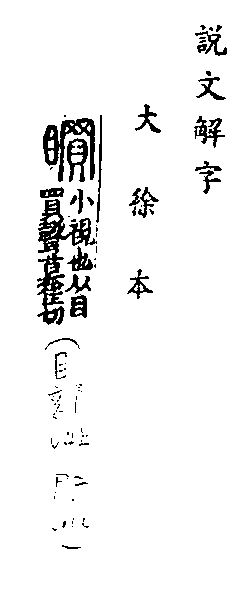 説文解字
大徐本
䁲
小視也从目
買聲莫佳切
(目部